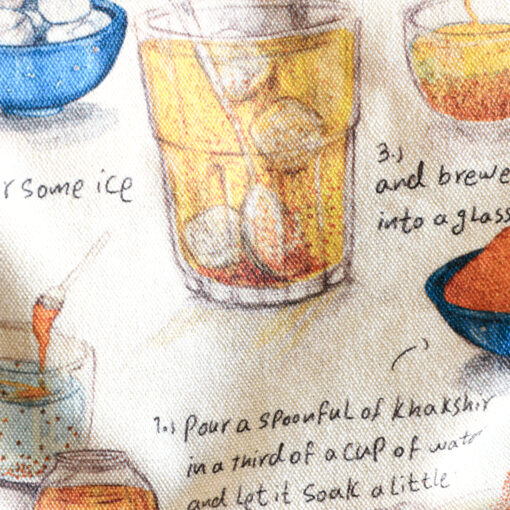 r some ice
3.)
and brewe
into a glass
1.) pour a spoonful of khakshir
in a third of a cup of water
and let it soak a little